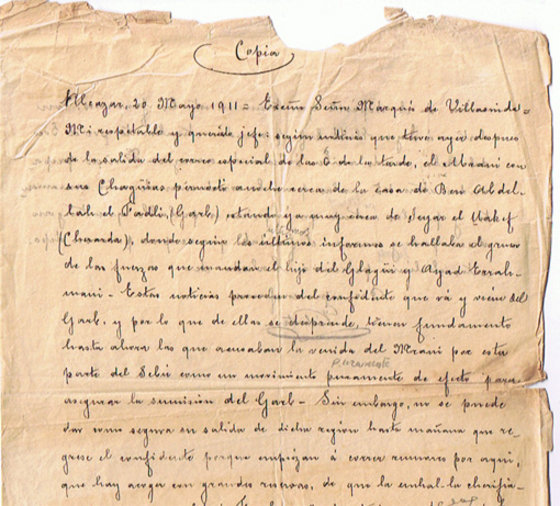 Copia
Alcazar, 20 Mayo 1911 = Excmo Señor Marqués de Villasinda =
Mi respetable y querido jefe: según noticias que tuve ayer despues
de la salida del correo especial de las 6 de la tarde, el Mrani con
sus Chagüias pernoctó anoche cerca de la Casa de Ben Abdel-
lah el Fadli, (Garb) estando ya muy cerca de el
(Cherarda), donde según los últimos informes se hallaba el grueso
últimos
de las fuerzas que mandan el hijo del Glagüi y Ayad Errah-
mani - Estas noticias proceden del confidente que vá y viene del
Garb, y por lo que de ellas se desprende, tienen fundamento
hasta ahora las que acusaban la venida del Mrani por esta
puramente
parte del Sebú como un movimiento puramente de efecto para
asegurar la sumisión del Garb - Sin embargo, no se puede
dar como segura su salida de dicha región hasta mañana que re-
grese el confidente porque empiezan á correr rumores por aqui,
que hay acoger con grandes reservas, de que la mhal-la cherifia-